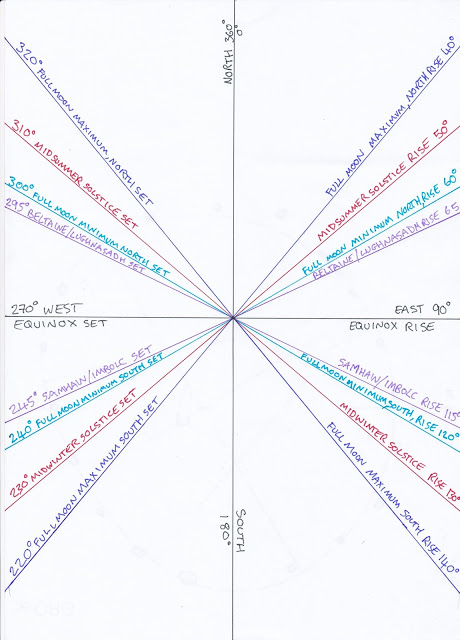 NORTH 360°
320° FULL MOON MAXIMUM, NORTH SET
310° MIDSUMMER SOLSTICE SET
300° FULL MOON MINIMUM NORTH SET
295° BELTAINE/LUGHNASADH SET
FULL MOON MAXIMUM, NORTH RISE 40°
MIDSUMMER SOLSTICE RISE 50°
FULL MOON MINIMUM NORTH, RISE 60°
BELTAINE/LUGHNASADH RISE 65
270° WEST
EQUINOX SET
EAST 90°
EQUINOX RISE
245° SAMHAIN/IMBOLC SET
240° FULL MOON MINIMUM SOUTH SET
230° MIDWINTER SOLSTICE SET
220° FULL MOON MAXIMUM SOUTH SET
SAMHAIN/IMBOLC RISE 115°
FULL MOON MINIMUM SOUTH, RISE 120°
MIDWINTER SOLSTICE RISE 130°
FULL MOON MAXIMUM SOUTH RISE 140°
SOUTH
180°